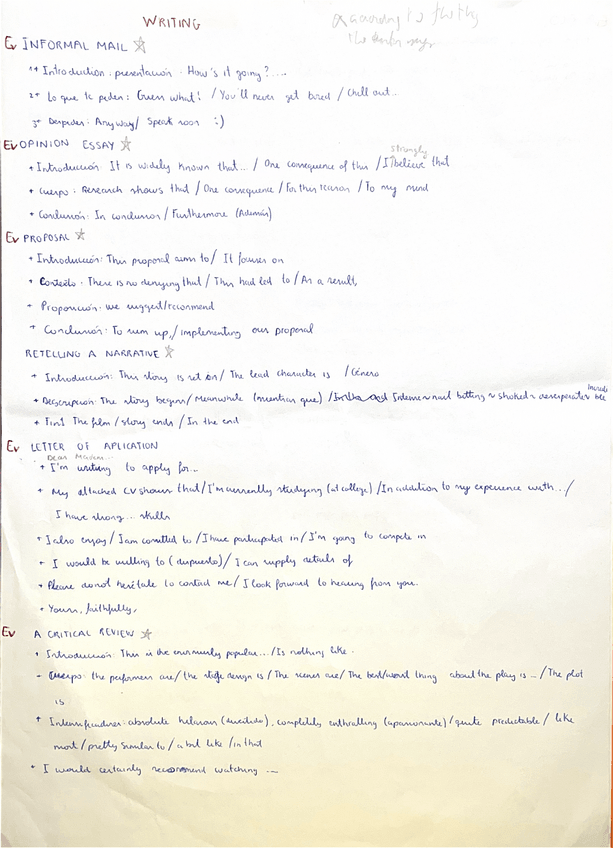 WRITING
according to
Ev INFORMAL MAIL ☆
1+ Introduction: presentación - How's it going?....
2+ Lo que te piden: Guess what! / You'll never get bored / Chill out..
3+ Despedir: Anyway / Speak soon :)
Ev OPINION ESSAY ☆
strongly
+ Introducción: It is widely known that... / One consequence of this / I believe that
+ Cuerpo: Research shows that / One consequence / For this reason / To my mind
+ Conclusión: In conclusion / Furthermore (Además)
Ev PROPOSAL ☆
+ Introducción: This proposal aims to / It focuses on
+ Contexto: There is no denying that / This had led to / As a result,
+ Proposición: we suggest/recommend
+ Conclusión: To sum up, / implementing our proposal
RETELLING A NARRATIVE ☆
+ Introducción: This story is set on / The lead character is / Género
+ Descripción: The story begins / Meanwhile (mientras que) / Intense ~ nail bitting ~
+ Final The film / story ends / In the end
Ev LETTER OF APLICATION
Dear Madam...
+ I'm writing to apply for...
+ My attached CV shows that / I'm currently studying (at college) / In addition to my experience with... /
I have strong... skills
+ I also enjoy / I am comitted to / I have participated in / I'm going to compete in
+ I would be willing to (dispuesto) / I can supply details of
+ Please do not hesitate to contact me / I look forward to hearing from you.
+ Yours, faithfully,
Ev A CRITICAL REVIEW ☆
+ Introducción: This is the enormusly popular... / Is nothing like.
- Cuerpo: the performers are / the stage design is / The scenes are / The best/worst thing about the play is ... / The plot
is
+ Intensificadores: absolute hilarious, completely enthralling (apasionante) / quite predictable / like
most / pretty similar to / a bit like / in that
+ I would certainly recommend watching ...